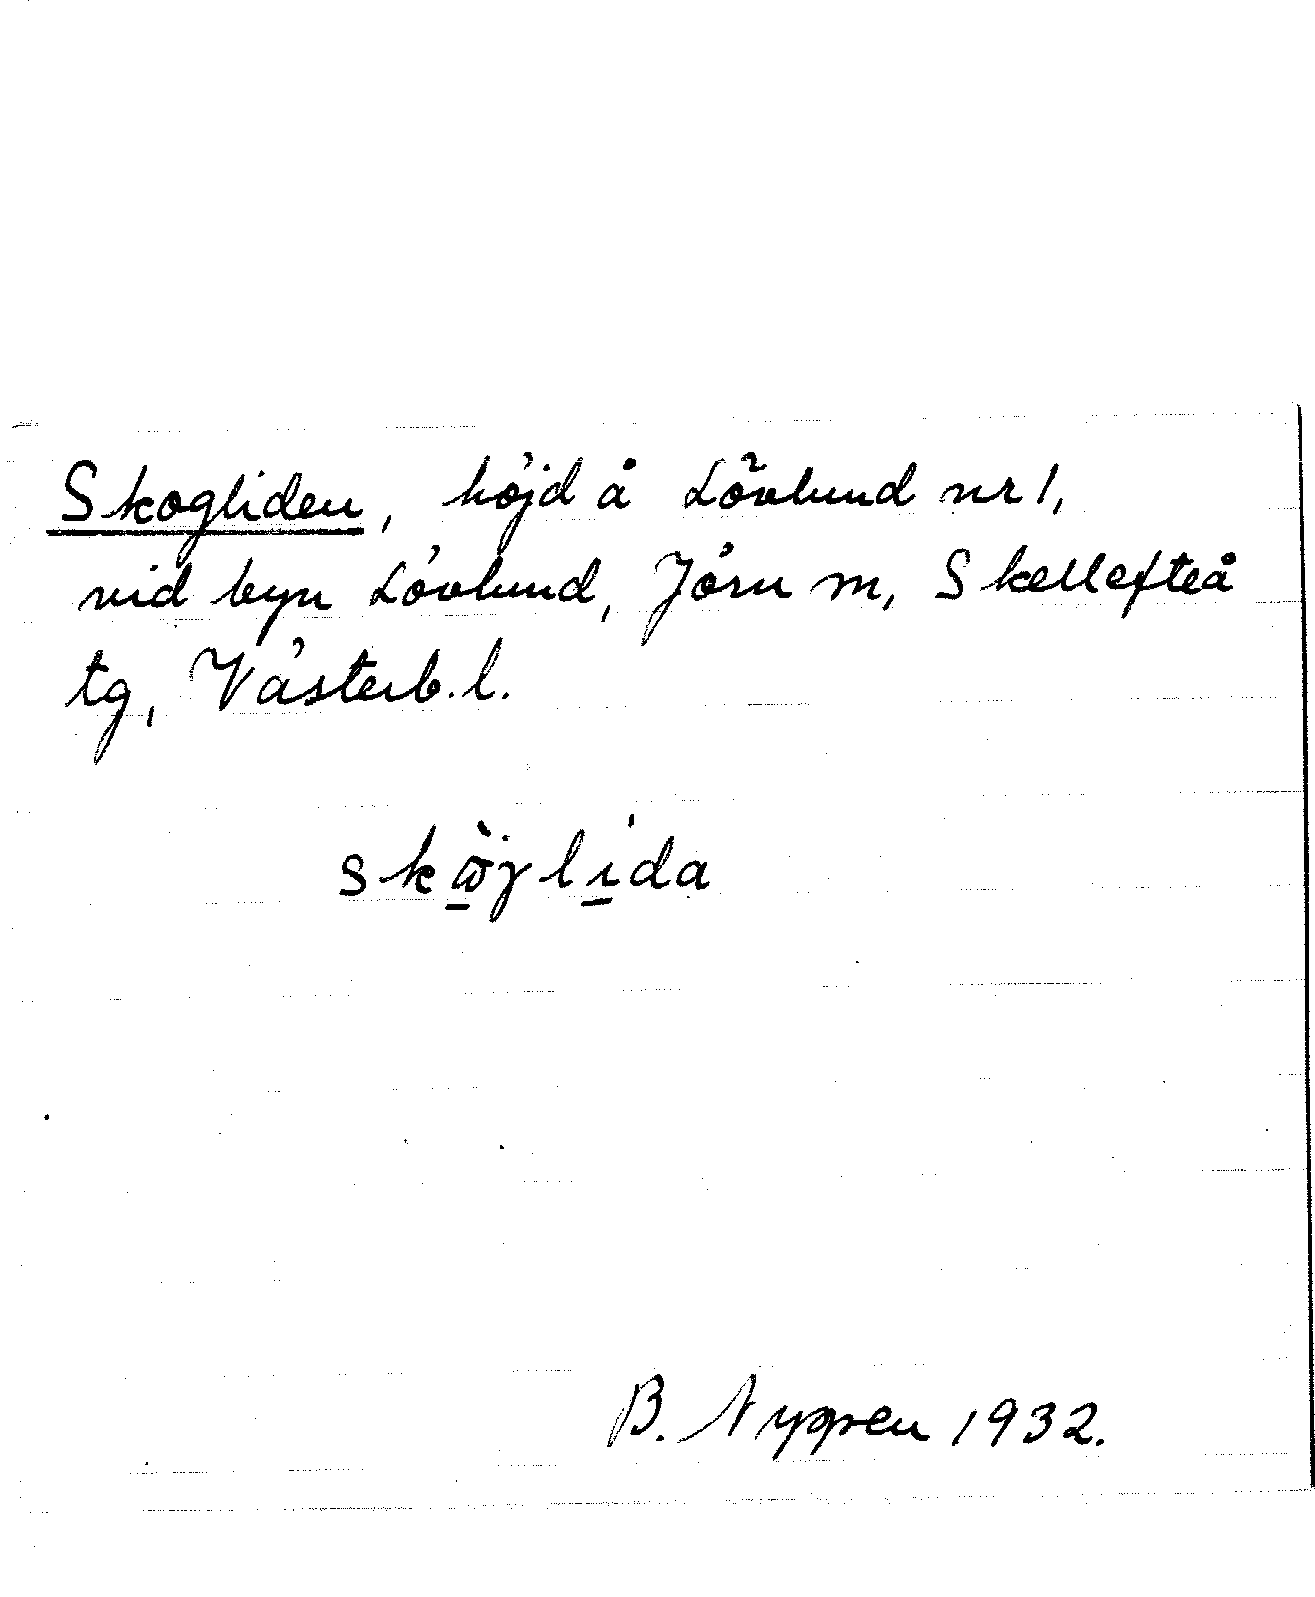 Skogliden, höjd å Lövlund nr 1,
vid byn Lövlund, Jörn m, Skellefteå
tg, Västerb. l.
skὼ̲γlí̲da
B. Nygren 1932.